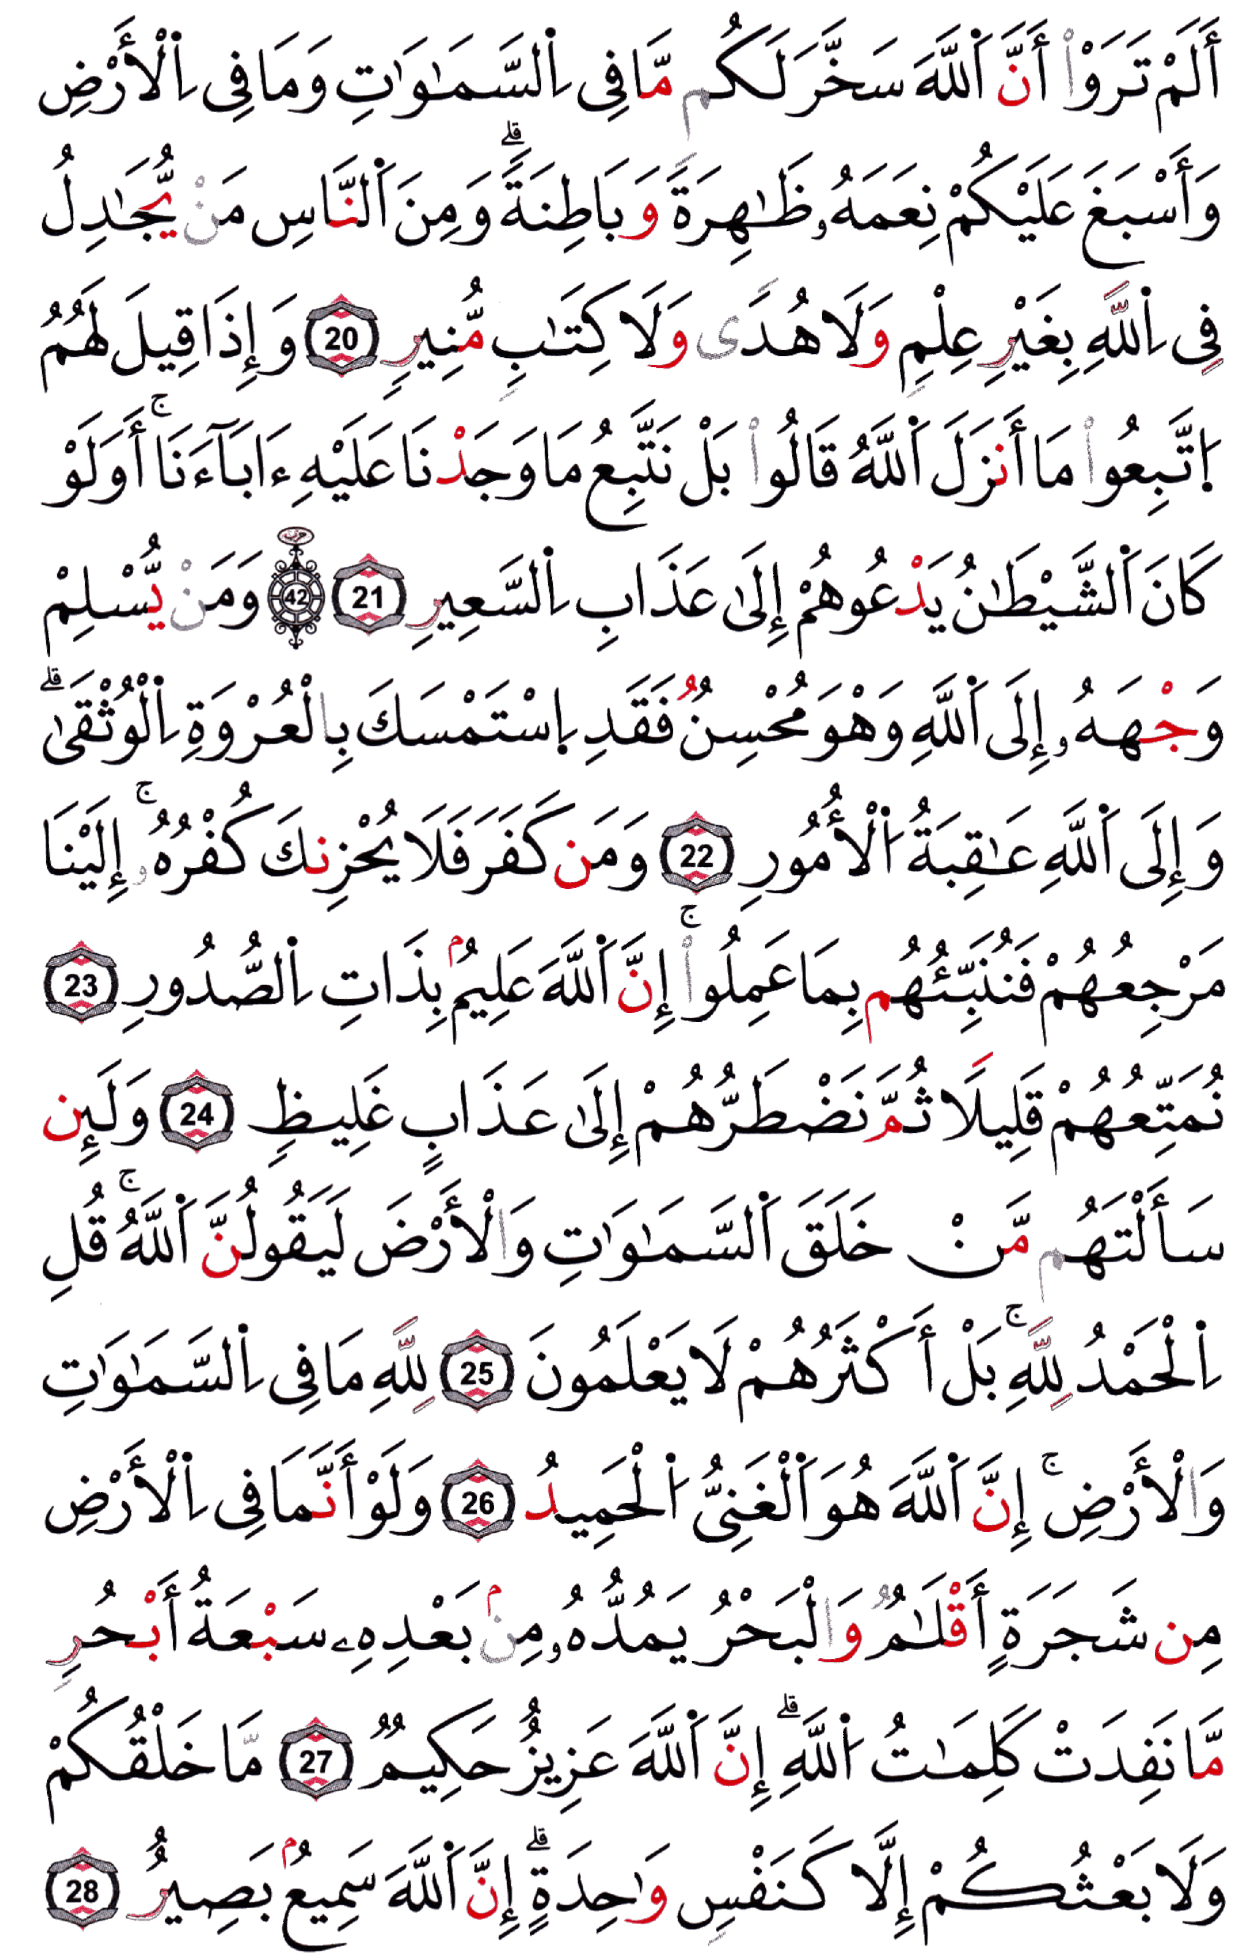 أَلَمْ تَرَوْاْ أَنَّ اَ۬للَّهَ سَخَّرَ لَكُم مَّا فِى اِ۬لسَّمَٰوَٰتِ وَمَا فِى اِ۬لْأَرْضِ
وَأَسْبَغَ عَلَيْكُمْ نِعَمَهُۥ ظَٰهِرَةً وَبَاطِنَةً ۗ وَمِنَ اَ۬لنَّاسِ مَنْ يُّجَٰدِلُ
فِى اِ۬للَّهِ بِغَيْرِ عِلْمٍ وَلَا هُدًى وَلَا كِتَٰبٍ مُّنِيرٍ 20 وَإِذَا قِيلَ لَهُمُ
اُ۪تَّبِعُواْ مَا أَنزَلَ اَ۬للَّهُ قَالُواْ بَلْ نَتَّبِعُ مَا وَجَدْنَا عَلَيْهِ ءَابَآءَنَا ۚ أَوَلَوْ
كَانَ اَ۬لشَّيْطَٰنُ يَدْعُوهُمْ إِلَىٰ عَذَابِ اِ۬لسَّعِيرِ 21 حزب 42 وَمَنْ يُّسْلِمْ
وَجْهَهُۥ إِلَى اَ۬للَّهِ وَهْوَ مُحْسِنٌ فَقَدِ اِ۪سْتَمْسَكَ بِالْعُرْوَةِ اِ۬لْوُثْقَىٰ ۗ
وَإِلَى اَ۬للَّهِ عَٰقِبَةُ اُ۬لْأُمُورِ 22 وَمَن كَفَرَ فَلَا يُحْزِنكَ كُفْرُهُۥ ۚ إِلَيْنَا
مَرْجِعُهُمْ فَنُنَبِّئُهُم بِمَا عَمِلُواْ ۚ إِنَّ اَ۬للَّهَ عَلِيمُۢ بِذَاتِ اِ۬لصُّدُورِ 23
نُمَتِّعُهُمْ قَلِيلًا ثُمَّ نَضْطَرُّهُمْ إِلَىٰ عَذَابٍ غَلِيظٍ 24 وَلَئِن
سَأَلْتَهُم مَّنْ خَلَقَ اَ۬لسَّمَٰوَٰتِ وَالْأَرْضَ لَيَقُولُنَّ اَ۬للَّهُ ۚ قُلِ
اِ۬لْحَمْدُ لِلَّهِ ۚ بَلْ أَكْثَرُهُمْ لَا يَعْلَمُونَ 25 لِلَّهِ مَا فِى اِ۬لسَّمَٰوَٰتِ
وَالْأَرْضِ ۚ إِنَّ اَ۬للَّهَ هُوَ اَ۬لْغَنِىُّ اُ۬لْحَمِيدُ 26 وَلَوْ أَنَّمَا فِى اِ۬لْأَرْضِ
مِن شَجَرَةٍ أَقْلَٰمٌ وَالْبَحْرُ يَمُدُّهُۥ مِنۢ بَعْدِهِۦ سَبْعَةُ أَبْحُرٍ
مَّا نَفِدَتْ كَلِمَٰتُ اُ۬للَّهِ ۗ إِنَّ اَ۬للَّهَ عَزِيزٌ حَكِيمٌ 27 مَّا خَلْقُكُمْ
وَلَا بَعْثُكُمْ إِلَّا كَنَفْسٍ وَٰحِدَةٍ ۗ إِنَّ اَ۬للَّهَ سَمِيعُۢ بَصِيرٌ 28